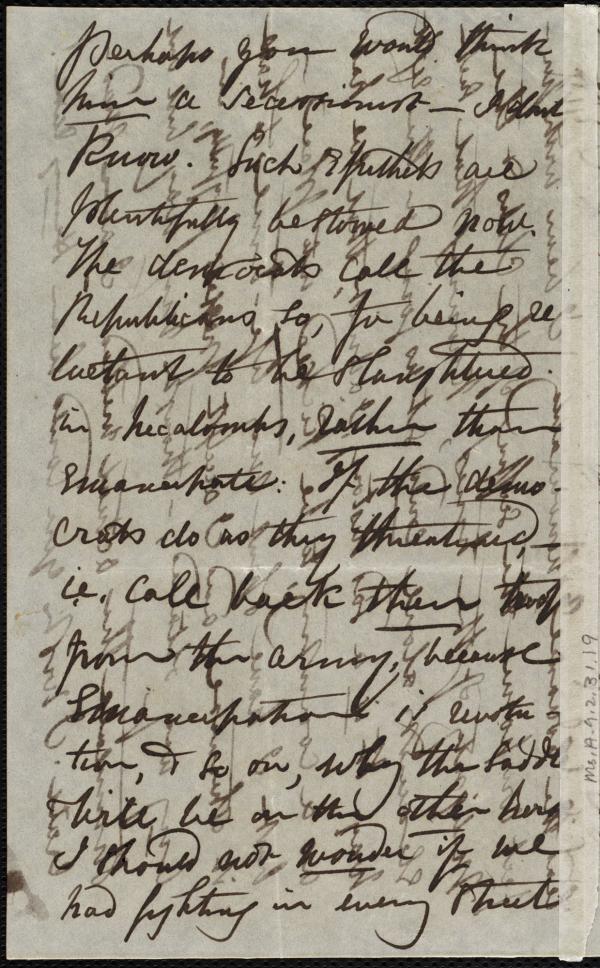 Perhaps, you would think
him a secessionist — I don't
know. Such epithets are
plentifully bestowed now.
The democrats call the
Republicans so, for being re
luctant to be slaughtered
in hecatombs, rather than
Emancipate: If the demo-
crats do as they threatened, —
i.e. call back their troops
from the army, because
Emancipation is revolu-
tion, & so on, why the saddle
will be on the other horse
I should not wonder if we
had fighting in every street
Ms.A.9.2.31.19